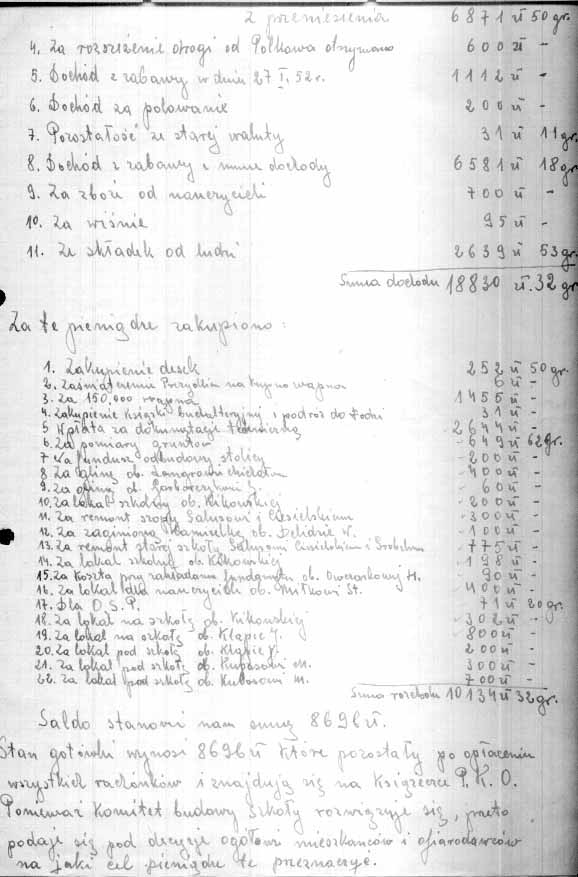 z przeniesienia 6871 zł 50 gr.
4. Za rozwiezienie drogi od Polkowa otrzymano 600 zł -
5. Dochód z zabawy w dniu 27 I. 52 r. 1112 zł -
6. Dochód za polowanie 200 zł -
7. Pozostałość ze starej waluty 31 zł 11 gr.
8. Dochód z zabawy i inne dochody 6581 zł 18 gr.
9. Za zboże od nauczycieli 700 zł -
10. Za wiśnie 95 zł -
11. Ze składek od ludzi 2639 zł 53 gr.
Suma dochodu 18830 zł. 32 gr.
Za te pieniądze zakupiono:
1. Zakupienie desek 252 zł 50 gr.
2. Zaświadczenie Prezydium na kupno wapna 6 zł -
3. Za 150,000 1455 zł -
4. Zakupienie książki buchalteryjnej i podróż do Łodzi 31 zł -
5 Wpłata za dokumentację techniczną 2644 zł -
6. Za pomiary gruntów 649 zł 62 gr.
7 Na fundusz odbudowy stolicy 200 zł -
8 Za glinę ob. 400 zł -
9. Za glinę ob. 60 zł -
10. Za lokal szkolny ob. Kikowskiej 200 zł -
11. Za remont szopy Salusowi i Ciesielskiemu 300 zł -
12. Za zaginioną ob. W. 100 zł -
13. Za remont starej szkoły Salusowi Ciesielskiemu i 775 zł -
14. Za lokal szkolny ob. Kikowskiej 198 zł -
15. Za koszta przy zakładaniu fundamentu ob. Owczarkowej H. 90 zł -
16. Za lokal dla nauczyciela ob. Mitkowi St. 400 zł -
17. Dla O.S.P. 71 zł 20 gr.
18. Za lokal na szkołę ob. Kikowskiej 302 zł -
19. Za lokal na szkołę ob. Kłapie J. 800 zł -
20. Za lokal pod szkołę ob. Kłapie J. 200 zł -
21. Za lokal pod szkołę ob. Kubosowi M. 300 zł -
22. Za lokal pod szkołę ob. Kubosowi M. 700 zł -
Suma rozchodu 10134 zł 32 gr.
Saldo stanowi nam sumę 8696 zł.
Stan gotówki wynosi 8696 zł które pozostały po opłaceniu
wszystkich rachunków i znajdują się na Książeczce P.K.O.
Ponieważ Komitet budowy Szkoły rozwiązuje się, przeto
podaje się pod decyzję ogółowi mieszkańców i ofiarodawców
na jaki cel pieniądze te przeznaczyć.